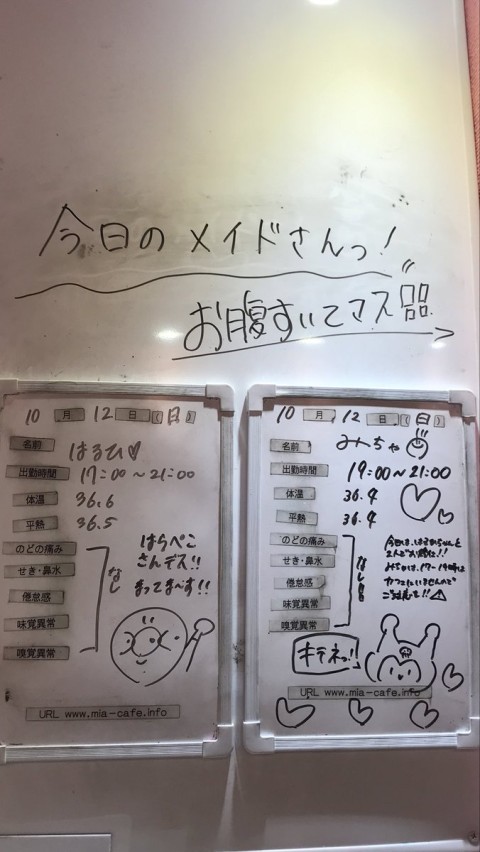 今日のメイドさんっ!
お腹すいてマス
10月12日(日)
名前 はるひ♡
出勤時間 17:00～21:00
体温 36.6
平熱 36.5
のどの痛み
せき・鼻水
倦怠感
味覚異常
嗅覚異常
なし
はらぺこ
さんデス!!
まってま〜す!!
URL www.mia-cafe.info
10月12日(日)
名前 みちゃ
出勤時間 19:00～21:00
体温 36.4
平熱 36.4
のどの痛み
せき・鼻水
倦怠感
味覚異常
嗅覚異常
なし
みちゃは、17〜19時は
カフェにいませんので
ご注意を!!⚠
キテネっ!
URL www.mia-cafe.info